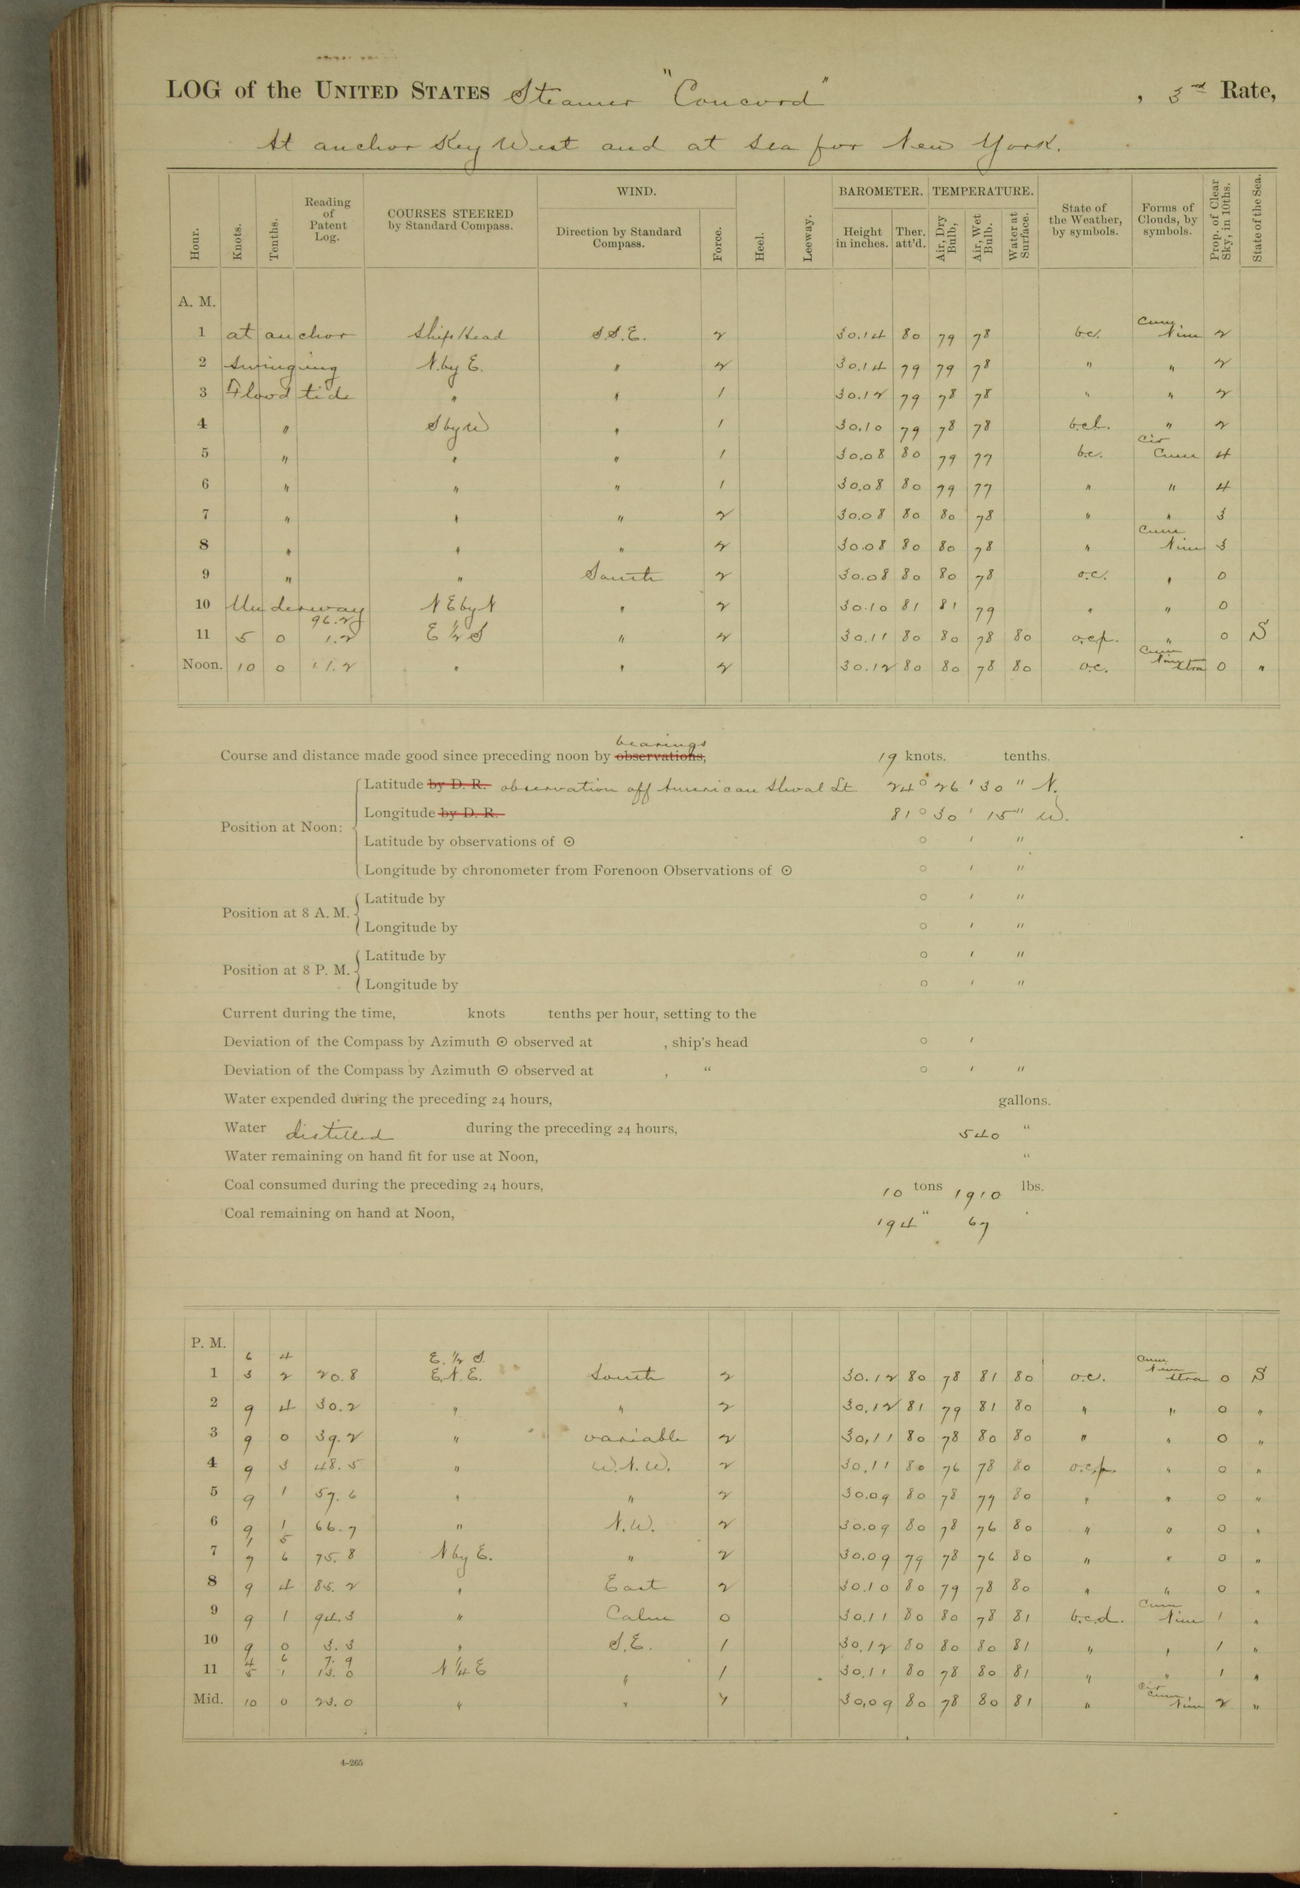 LOG of the UNITED STATES Steamer "Concord" , 3rd Rate,
At anchor Key West and at sea for New York.
Hour. Knots. Tenths. Reading of Patent Log. COURSES STEERED by Standard Compass. WIND. Direction by Standard Compass. Force. Heel. Leeway. BAROMETER. Height in inches. Ther. att'd. TEMPERATURE. Air, Dry Bulb, Air, Wet Bulb. Water at Surface. State of the Weather, by symbols. Forms of Clouds, by symbols. Prop. of Clear Sky, in 10ths. State of the Sea.
A. M.
1 at anchor Ship's Head S.S.E. 2 30.14 80 79 78 b.c. Cum Nim 2
2 Swinging N. by E. " 2 30.14 79 79 78 " " 2
3 Flood tide " " 1 30.12 79 78 78 " " 2
4 " S by W " 1 30.10 79 78 78 b.c.l. " 2
5 " " " 1 30.08 80 79 77 b.c. Cir Cum 4
6 " " " 1 30.08 80 79 77 " " 4
7 " " " 2 30.08 80 80 78 " " 3
8 " " " 2 30.08 80 80 78 " Cum Nim 3
9 " " South 2 30.08 80 80 78 o.c. " 0
10 Underway N E by N " 2 30.10 81 81 79 " " 0
96.2
11 5 0 1.2 E ½ S " 2 30.11 80 80 78 80 o.c.p. " 0 S
Noon. 10 0 11.2 " " 2 30.12 80 80 78 80 o.c. Cum Nim Stra 0 "
bearings
Course and distance made good since preceding noon by observations, 19 knots. tenths.
Position at Noon: Latitude by D. R. observation off American Shoal Lt 24 ° 26 ' 30 " N.
Longitude by D. R. 81 ° 30 ' 15 " W.
Latitude by observations of ☉ ° ' "
Longitude by chronometer from Forenoon Observations of ☉ ° ' "
Position at 8 A. M. Latitude by ° ' "
Longitude by ° ' "
Position at 8 P. M. Latitude by ° ' "
Longitude by ° ' "
Current during the time, knots tenths per hour, setting to the
Deviation of the Compass by Azimuth ☉ observed at , ship's head ° '
Deviation of the Compass by Azimuth ☉ observed at , " ° ' "
Water expended during the preceding 24 hours, gallons.
Water distilled during the preceding 24 hours, 540 "
Water remaining on hand fit for use at Noon, "
Coal consumed during the preceding 24 hours, 10 tons 1910 lbs.
Coal remaining on hand at Noon, 194 " 67
P. M.
6 4 E. ½ S.
1 3 2 20.8 E.N.E. South 2 30.12 80 78 81 80 o.c. Cum Nim Stra 0 S
2 9 4 30.2 " " 2 30.12 81 79 81 80 " " 0 "
3 9 0 39.2 " variable 2 30.11 80 78 80 80 " " 0 "
4 9 3 48.5 " W.N.W. 2 30.11 80 76 78 80 o.c.p. " 0 "
5 9 1 57.6 " " 2 30.09 80 78 79 80 " " 0 "
6 9 1 66.7 " N.W. 2 30.09 80 78 76 80 " " 0 "
1 5
7 7 6 75.8 N by E. " 2 30.09 79 78 76 80 " " 0 "
8 9 4 85.2 " East 2 30.10 80 79 78 80 " " 0 "
9 9 1 94.3 " Calm 0 30.11 80 80 78 81 b.c.d. Cum Nim 1 "
10 9 0 3.3 " S.E. 1 30.12 80 80 80 81 " " 1 "
4 6 7.9
11 5 1 13.0 N ¼ E " 1 30.11 80 78 80 81 " " 1 "
Mid. 10 0 23.0 " " 30.09 80 78 80 81 " Cir Cum. Nim 2 "
4-265